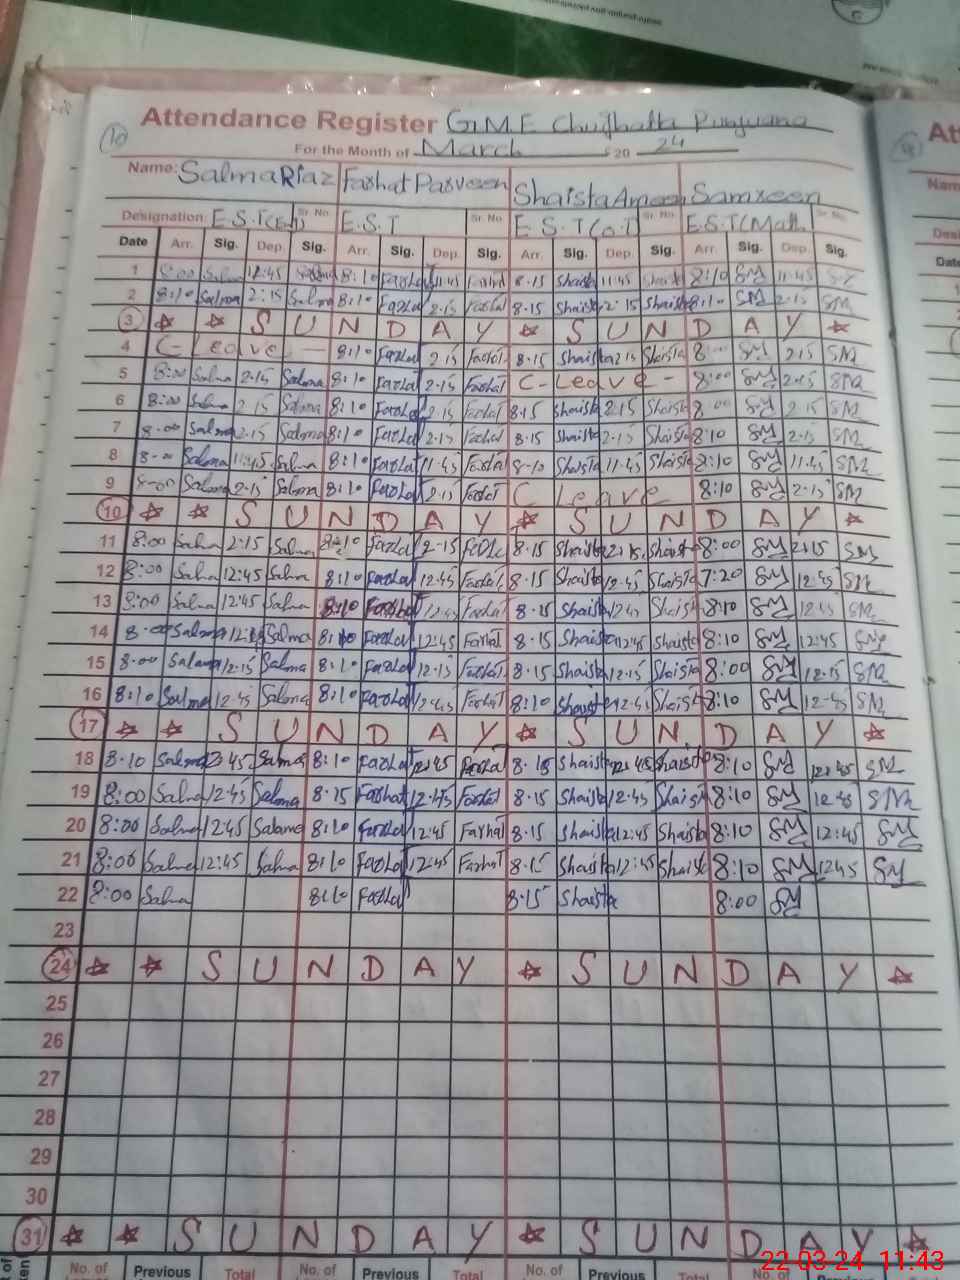 10
Attendance Register G.M.E Chujhatta Punjuana
For the Month of March 20 24
Name: Salma Riaz Farhat Parveen Shaista Ameen Samreen
Designation: E.S.T(Eng) Sr. No. E.S.T Sr. No. E.S.T(O.T) Sr. No. E.S.T(Math Sr. No.
Date Arr. Sig. Dep. Sig. Arr. Sig. Dep. Sig. Arr. Sig. Dep. Sig. Arr. Sig. Dep. Sig.
1 8:00 Salma 11:45 Salma 8:10 Farhat 11:45 Farhat 8.15 Shaista 11:45 Shaista 8:10 SM 11:45 SM
2 8:10 Salma 2:15 Salma 8:10 Farhat 2.15 Farhat 8.15 Shaista 2:15 Shaista 8:10 SM 2.15 SM
3 S U N D A Y S U N D A Y
4 C-Leave - 8:10 Farhat 2.15 Farhat 8.15 Shaista 2:15 Shaista 8:00 SM 2.15 SM
5 8:00 Salma 2.15 Salma 8:10 Farhat 2.15 Farhat C-Leave - 8:00 SM 2.15 SM
6 8:00 Salma 2.15 Salma 8:10 Farhat 2.15 Farhat 8.15 Shaista 2.15 Shaista 8:00 SM 2.15 SM
7 8.00 Salma 2.15 Salma 8:10 Farhat 2.15 Farhat 8.15 Shaista 2.15 Shaista 8:10 SM 2.15 SM
8 8.00 Salma 11:45 Salma 8:10 Farhat 11.45 Farhat 8-10 Shaista 11.45 Shaista 8:10 SM 11.45 SM
9 8:00 Salma 2.15 Salma 8:10 Farhat 2.15 Farhat C Leave 8:10 SM 2.15 SM
10 S U N D A Y S U N D A Y
11 8:00 Salma 2:15 Salma 8:10 Farhat 2-15 Farhat 8.15 Shaista 2:15 Shaista 8:00 SM 2:15 SM
12 8:00 Salma 12:45 Salma 8:10 Farhat 12.45 Farhat 8.15 Shaista 12.45 Shaista 7:20 SM 12:45 SM
13 8:00 Salma 12:45 Salma 8:10 Farhat 12.45 Farhat 8.15 Shaista 12.45 Shaista 8:10 SM 12:45 SM
14 8.00 Salma Salma 8:10 Farhat 12:45 Farhat 8.15 Shaista 12:45 Shaista 8:10 SM 12:45 SM
15 8.00 Salma 12.15 Salma 8:10 Farhat 12.15 Farhat 8.15 Shaista 12.15 Shaista 8:00 SM 12.15 SM
16 8:10 Salma 12.45 Salma 8:10 Farhat 12.45 Farhat 8:10 Shaista 12.45 Shaista 8:10 SM 12-45 SM
17 S U N D A Y S U N D A Y
18 8.10 Salma 12:45 Salma 8:10 Farhat 12:45 Farhat 8.15 Shaista 12:45 Shaista 8:10 SM 12:45 SM
19 8:00 Salma 12.45 Salma 8.15 Farhat 12.45 Farhat 8.15 Shaista 12.45 Shaista 8:10 SM 12.45 SM
20 8:00 Salma 12:45 Salma 8:10 Farhat 12:45 Farhat 8.15 Shaista 12:45 Shaista 8:10 SM 12:45 SM
21 8:00 Salma 12:45 Salma 8:10 Farhat 12:45 Farhat 8.15 Shaista 12:45 Shaista 8:10 SM 1245 SM
22 8:00 Salma 8:10 Farhat 8.15 Shaista 8:00 SM
23
24 S U N D A Y S U N D A Y
25
26
27
28
29
30
31 S U N D A Y S U N D A Y
No. of Previous Total No. of Previous Total No. of Previous Total No. of Previous
22-03-24 11:43